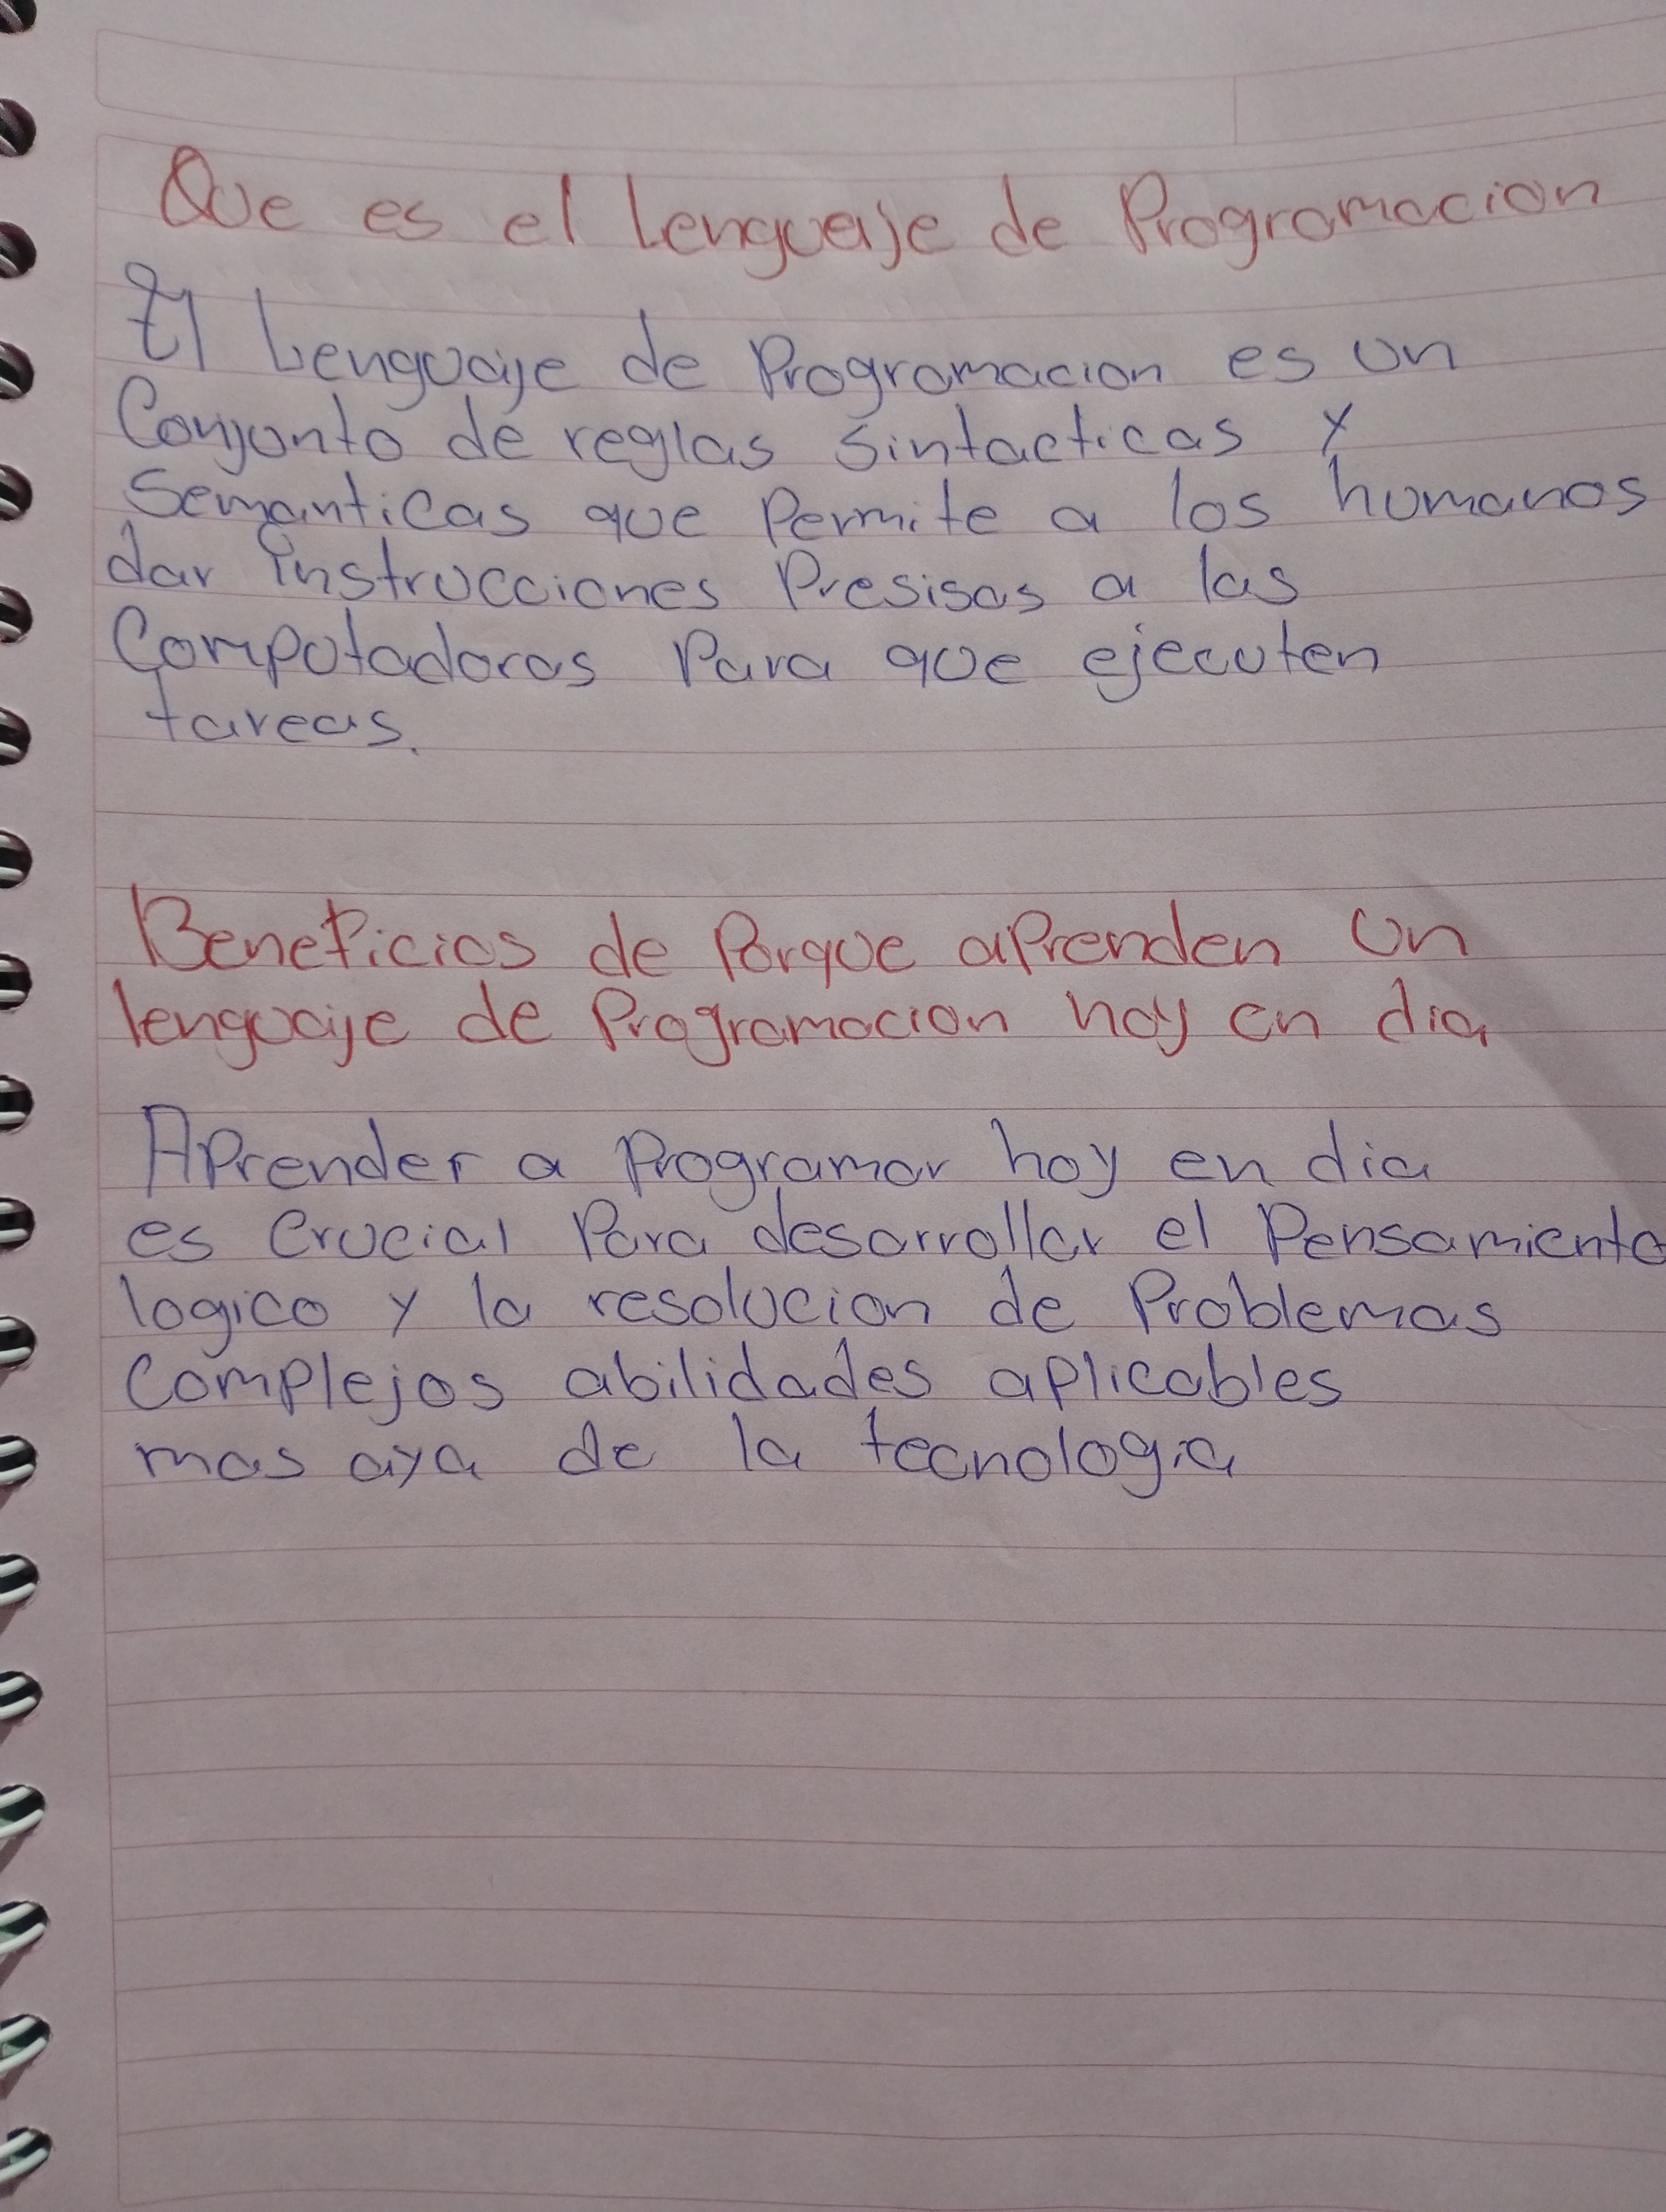 Que es el Lenguaje de Programacion
El Lenguaje de Programacion es un
Conjunto de reglas Sintacticas y
Semanticas que Permite a los humanos
dar instrucciones Presisas a las
Computadoras Para que ejecuten
tareas.
Beneficios de Porque aprenden un
lenguaje de Programacion hoy en dia
Aprender a Programar hoy en dia
es Crucial Para desarrollar el Pensamiento
logico y la resolucion de Problemas
Complejos abilidades aplicables
mas aya de la tecnologia